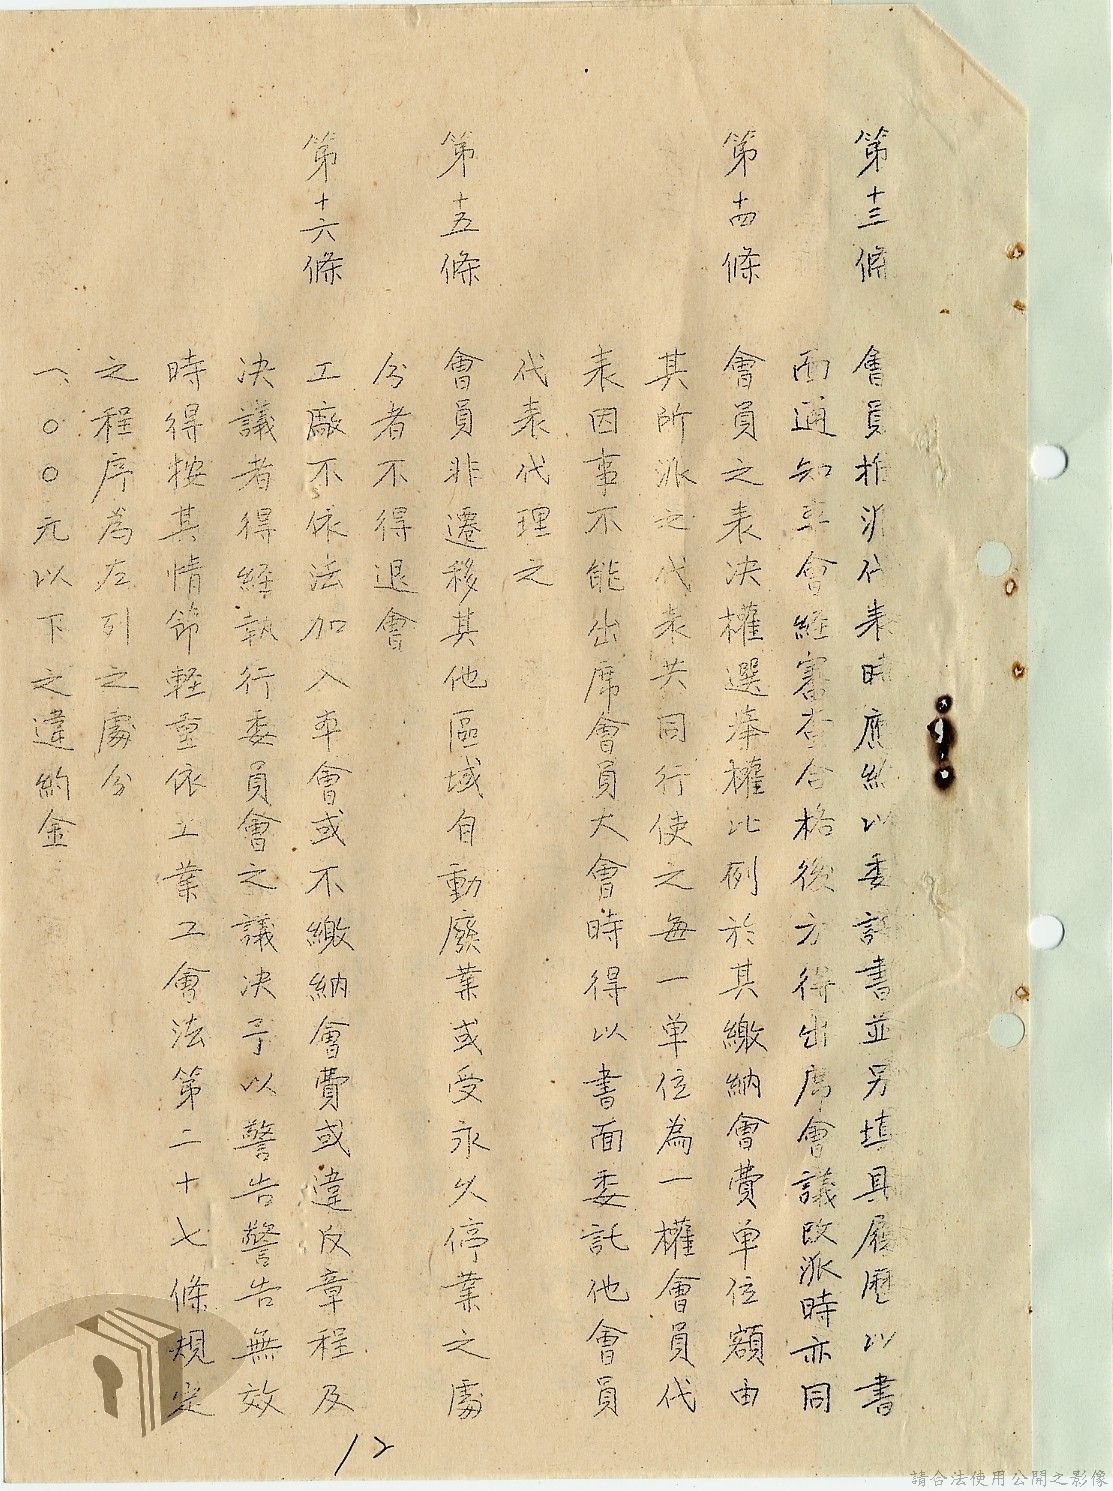 第十三條 會員推派代表時應給以委託書並另填具履歷以書
面通知本會經審查合格後方得出席會議改派時亦同
第十四條 會員之表决權選举權比例於其繳納會費单位額由
其所派之代表共同行使之每一单位為一權會員代
表因事不能出席會員大會時得以書面委託他會員
代表代理之
第十五條 會員非遷移其他區域自動廢業或受永久停業之處
分者不得退會
第十六條 工廠不依法加入本會或不繳納會費或違反章程及
决議者得經執行委員會之議决予以警告警告無效
時得按其情節輕重依工業工會法第二十七條規定
之程序為左列之處分
一、〇〇元以下之違約金
12
請合法使用公開之影像